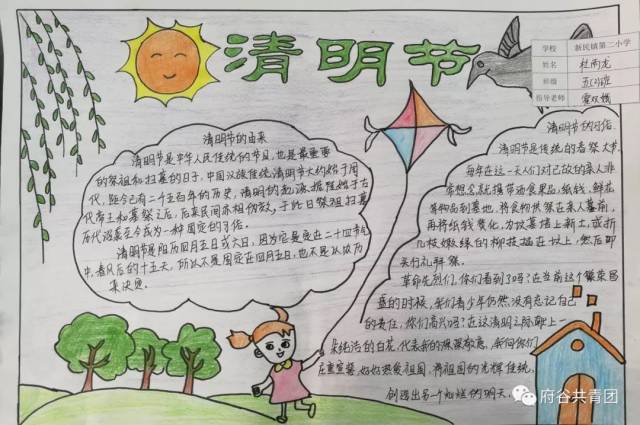 清明节
学校 新民镇第二小学
姓名 杜雨龙
班级
指导老师
清明节的由来
清明节是中华人民传统的节日,也是最重要
的祭祖和扫墓的日子,中国汉族传统清明节大约始于周
代,距今已有二千五百年的历史,清明的起源,据传始于古
代帝王和墓祭之后,历来民间亦相仿效,于此日祭祖扫墓
历代沿袭至今成为一种固定的习俗。
清明节是阳历四月五日或六日,因为它是定在二十四节气
中,春风后的十五天,所以不是固定在四月五日,也不是从农历
来决定。
清明节的习俗
清明节是传统的春祭大节
每年在这一天人们对已故的亲人非
常想念,就携带汤食果品,纸钱,鲜花
等物品到墓地,将食物供祭在亲人墓前,
再将纸钱焚化,为坟墓培上新土,或折
几枝嫩绿的柳枝插在坟上,然后即
头行礼拜祭。
革命先烈们,你们看到了吗?在当前这个繁荣昌
盛的时候,我们青少年仍然没有忘记自己
的责任,你们高兴吧?在这清明之际献上一
朵纯洁的白花,代表新的深深敬意,新向你们
庄重宣誓,好好热爱祖国,将祖国的光辉传统,
创造出另一个灿烂的明天。
府谷共青团